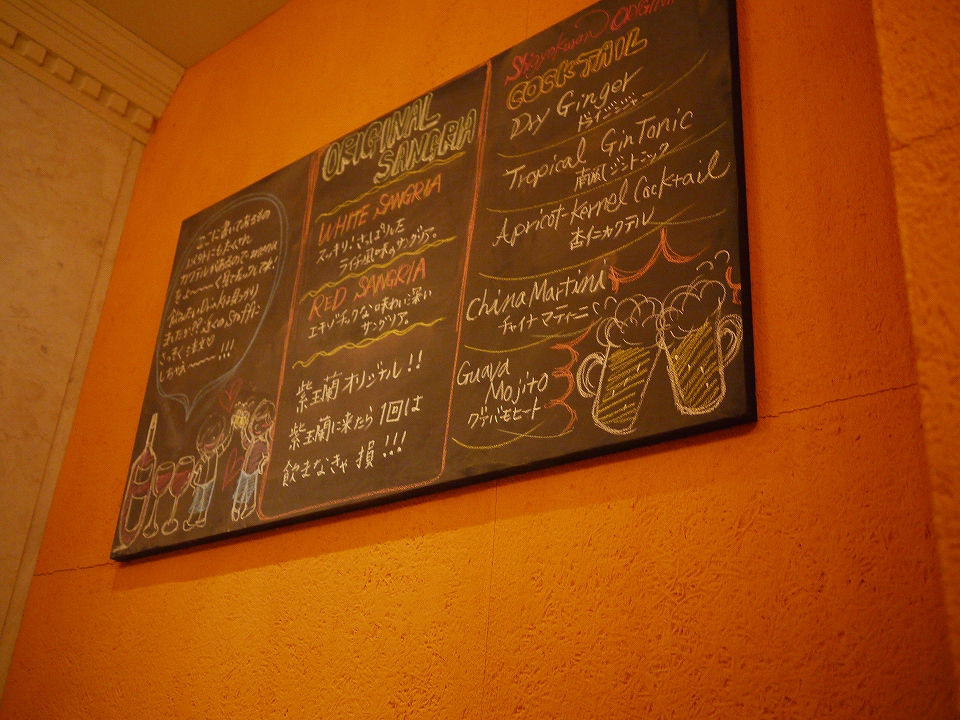 ここに書いてあるもの
以外にもたくさん
カクテルがあるので MENU
をよ〜〜〜く見て
飲みたいDrinkは見つかり
ましたか?? 近くのStaffに
!!!
ORIGINAL
SANGRIA
WHITE SANGRIA
スッキリ!さっぱりした
ライチ風味のサングリア。
RED SANGRIA
エキゾチックな味わい深い
サングリア。
紫玉蘭オリジナル!!
紫玉蘭に来たら1回は
飲まなきゃ損!!!
ORIGINAL
COCKTAIL
Dry Ginger
ドライジンジャー
Tropical Gin Tonic
南風ジントニック
Apricot-Kernel Cocktail
杏仁カクテル
China Martini
チャイナマティーニ
Guava
Mojito
グァバモヒート